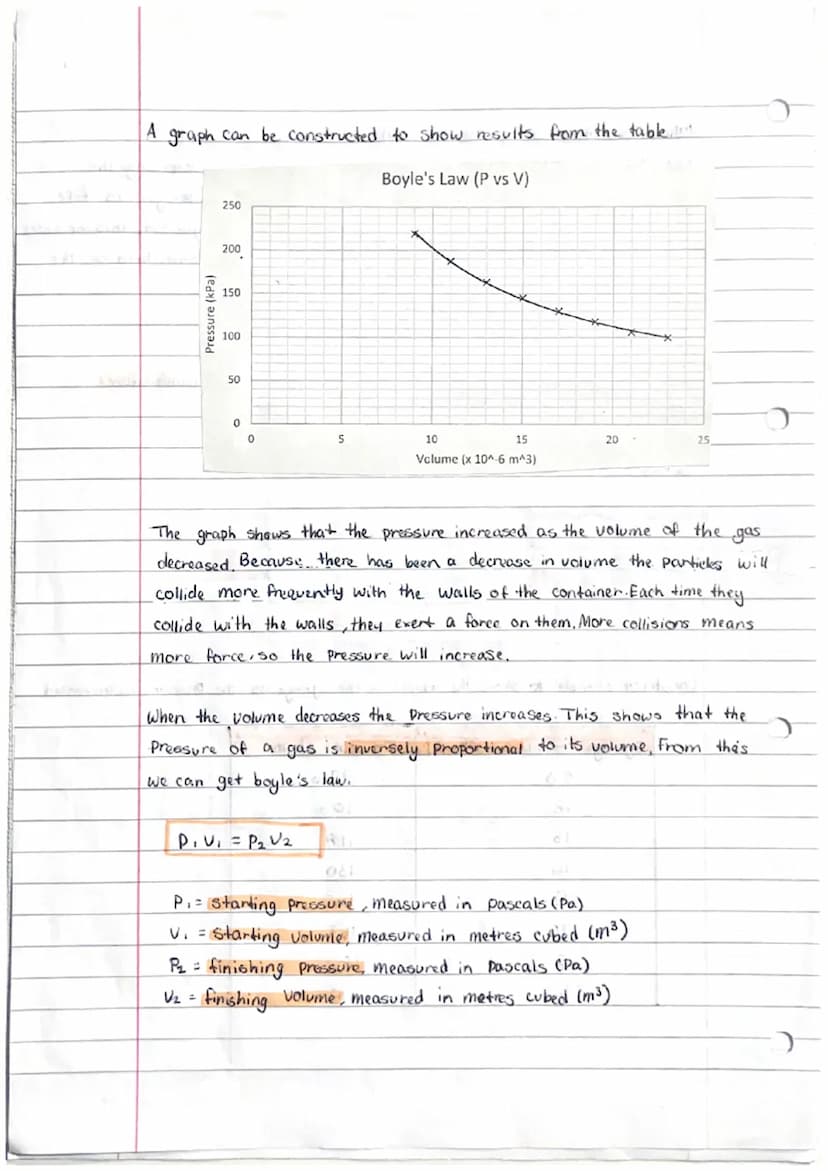 A graph can be constructed to show results from the table.
Boyle's Law (P vs V)
250
200
150
100
50
0
Pressure (kPa)
0 5 10 15 20 25
Volume (x 10^-6 m^3)
The graph shows that the pressure increased as the volume of the gas
decreased. Because there has been a decrease in volume the particles will
collide more frequently with the walls of the container. Each time they
collide with the walls, they exert a force on them. More collisions means
more force, so the pressure will increase.
When the volume decreases the pressure increases. This shows that the
Pressure of a gas is inversely proportional to its volume, From this
we can get boyle's law.
P₁ V₁ = P₂ V₂
P₁ = starting pressure, measured in pascals (Pa)
V₁ = starting volume, measured in metres cubed (m³)
P₂ = finishing pressure, measured in pascals (Pa)
V₂ = finishing volume, measured in metres cubed (m³)